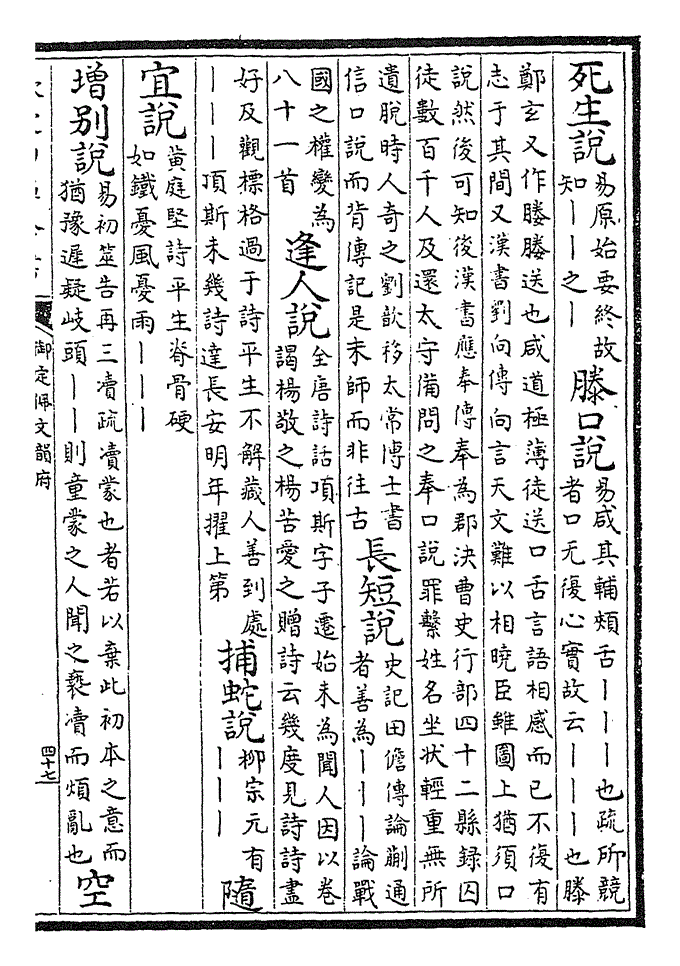 死生說
易原始要終故
知｜｜之｜
滕口說
易咸其輔頰舌｜｜｜也疏所競
者口无復心實故云｜｜｜也滕
鄭玄又作媵媵送也咸道極薄徒送口舌言語相感而已不復有
志于其間又漢書劉向傳向言天文難以相曉臣雖圖上猶須口
說然後可知後漢書應奉傳奉為郡決曹史行部四十二縣録囚
徒數百千人及還太守備問之奉口說罪繫姓名坐狀輕重無所
遺脫時人奇之劉歆移太常博士書
信口說而背傳記是末師而非往古
長短說
史記田儋傳論蒯通
者善為｜｜｜論戰
國之權變為
八十一首
逢人說
全唐詩話項斯字子遷始未為聞人因以卷
謁楊敬之楊苦愛之贈詩云幾度見詩詩盡
好及觀標格過于詩平生不解藏人善到處
｜｜｜項斯未幾詩達長安明年擢上第
捕蛇說
柳宗元有
｜｜｜
隨
宜說
黄庭堅詩平生脊骨硬
如鐵憂風憂雨｜｜｜
增別說
易初筮告再三凟疏凟蒙也者若以棄此初本之意而
猶豫遲疑岐頭｜｜則童蒙之人聞之褻凟而煩亂也
空
御定佩文韻府
四十七